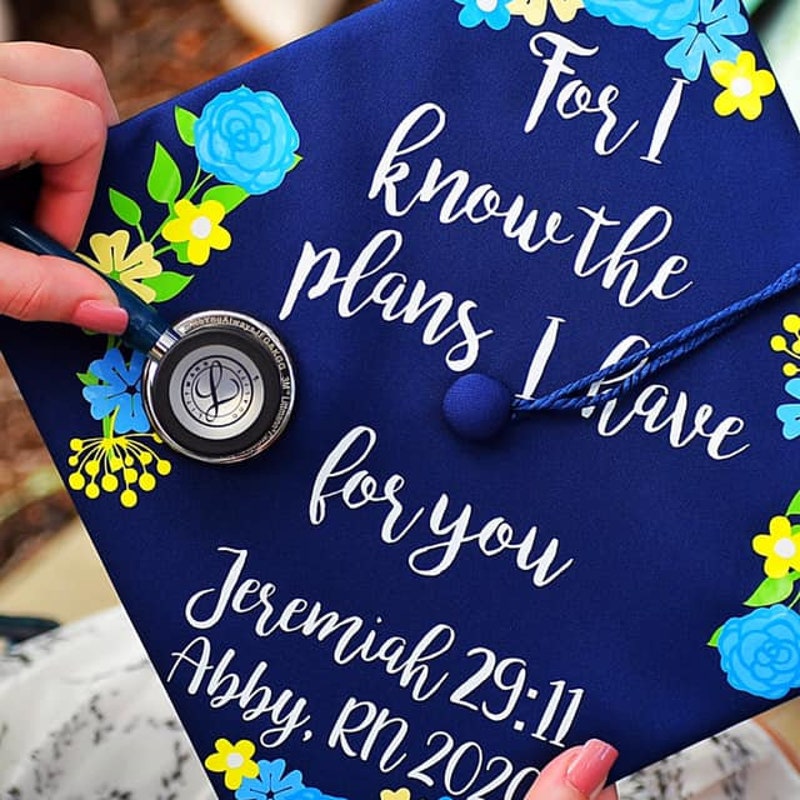 For I
know the
plans I have
for you
Jeremiah 29:11
Abby, RN 2020